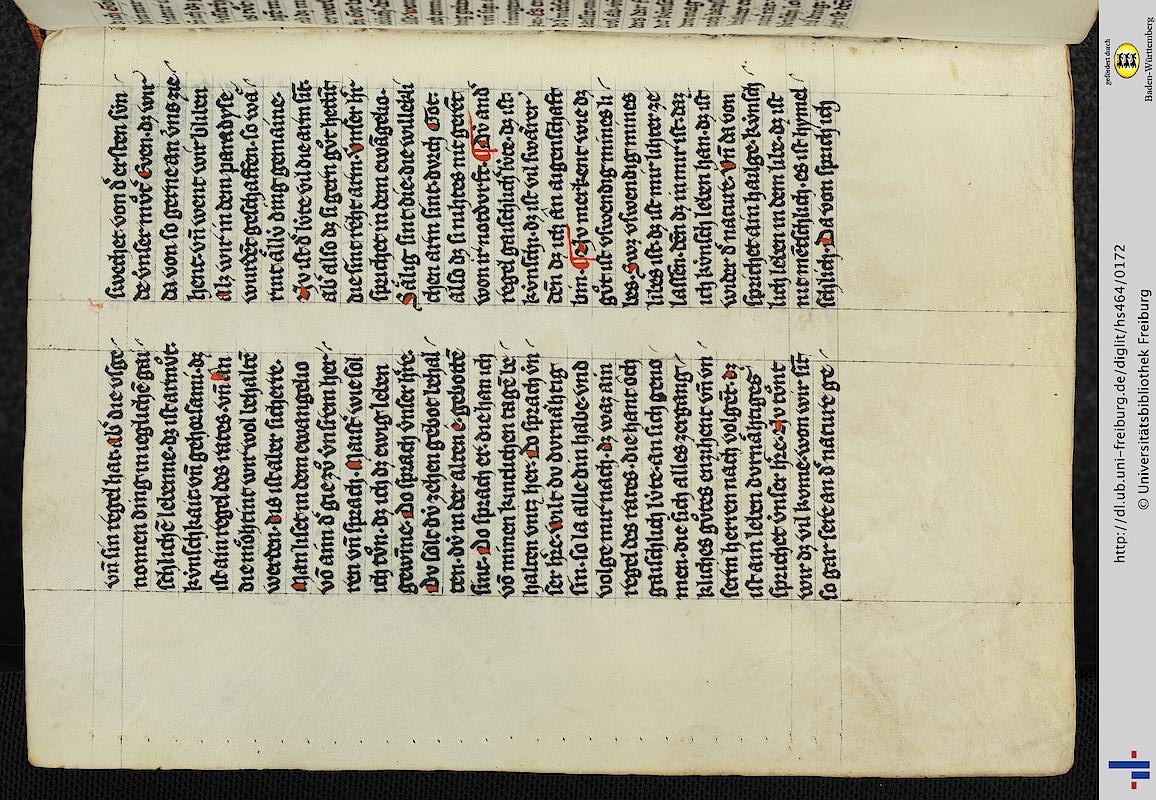 vn̄ sin regel hat· ald die vsge
nomen ding in ieglichē gai
schlichē lebenne· dz ist armvͦt·
kv́nschkait· vn̄ gehorsami· dz
ist ain regel des rates· vn̄ ain
die mohtint wir wol behaltē
werden· dis ist alter sicherte·
Man liset in dem ewangelio
vō aim d' gie zvͦ vnsrem her
ren vn̄ sprach· Maister wie sol
ich tvͦn· dz ich dz ewig leben
gewīne· Do sprach vnser hre·
Dv solt dv́ zehen gebot behal
ten· dv́ in der alten e· gebottē
sint· Do sprach er· die han ich
vō minen kintlichen tagē be
halten vntz her· Do sprach vn
ser hre· wilt dv durnähtig
sin· so la alle din habe· vnd
volge mir nach· dz waz ain
regel des rates· die hant och
gaischlich lv́te· an sich geno
men· die sich alles zergang
kliches gvͦtes enzihent vn̄ vn
serm herren nach volgēt· dz
ist ain leben durnähtiges·
sprichet vnser hre· zv tvͦnt
wir dz vil kome· won wir sīt
so gar sere an d' nature ge
swechet von d' ersten sin
de vnser mvͦt' Even· dz wir
da von so gerne an vns zie
hent· vn̄ went wir bliben
alz wir in dem paradyse
wurdēt geschaffen· so wä
rint ällv́ ding gemaine·
Nv ist d' lv́te vil die arm sīt·
ab' also dz si gern gvͦt hetīt
die sint reht arn· vnser hr'
sprichet in dem ewāgelio·
Sälig sint die· die willekli
chen arm sint· dvrch Got·
also dz si nihtes nit gerēt
won ir notdvrft· Dv́ and'
regel gaischlich' lv́te· dz ist·
kv́nsch· dz ist vil swärer·
dēn dz ich ān aigenschaft
bin· Nv merkent wie dz
gvͦt ist vswendig mines li
bes· swz vswendig mines
libes ist· dz ist mir lihter ze
lassen· den dz in mir ist· daz
ich kv́nsch leben han· dz ist
wider d' nature· vn̄ da von
sprichet ain hailge· kv́nsch
lich leben in dem libe· dz ist
nit mēschlich· es ist hymel
schlich· Da von sprich ich
http://dl.ub.uni-freiburg.de/diglit/hs464/0172
© Universitätsbibliothek Freiburg
gefördert durch
Baden-Württemberg